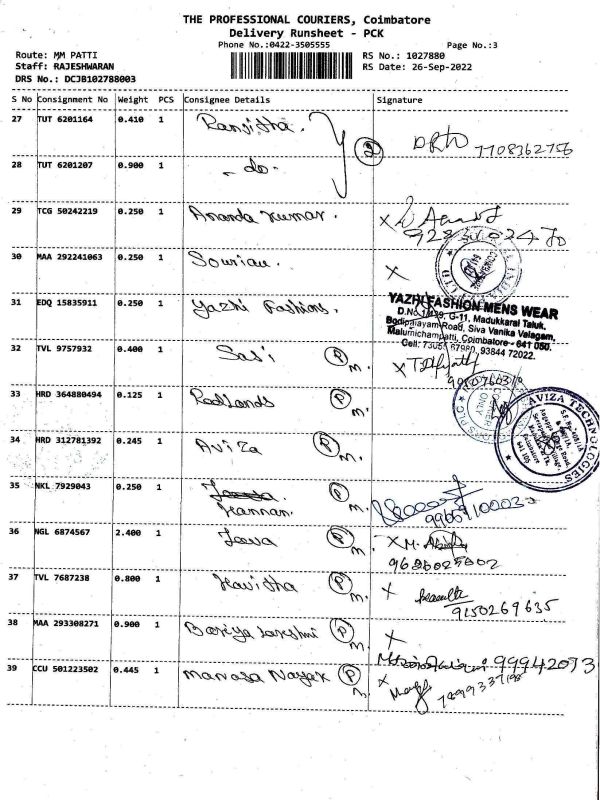 THE PROFESSIONAL COURIERS, Coimbatore
Delivery Runsheet - PCK
Phone No.:0422-3505555
Page No.:3
Route: MM PATTI
RS No.: 1027880
Staff: RAJESHWARAN
RS Date: 26-Sep-2022
DRS No.: DCJB102788003
S No Consignment No Weight PCS Consignee Details Signature
27 TUT 6201164 0.410 1 Ransitha. 2 7708362756
28 TUT 6201207 0.900 1 - do -
29 TCG 50242219 0.250 1 Ananda Kumar. X
30 MAA 292241063 0.250 1 X
31 EDQ 15835911 0.250 1 Yazhi Fashions.
YAZHI FASHION MENS WEAR
D.No.1/439, G-11, Madukkarai Taluk,
Bodipalayam Road, Siva Vanika Valagam,
Malumichampatti, Coimbatore - 641 050.
Cell: 73055 67980, 93844 72022.
32 TVL 9757932 0.400 1 Sasi P m. X
33 HRD 364880494 0.125 1 Roodlands P m.
34 HRD 312781392 0.245 1 Aviza P m.
AVIZA TECHNOLOGIES
641 105
35 NKL 7929043 0.250 1 Kannan. P m.
36 NGL 6874567 2.400 1 Jeeva P m. X M.
37 TVL 7687238 0.800 1 Kavitha P m. X
9150269635
38 MAA 293308271 0.900 1 P m. X
39 CCU 501223502 0.445 1 Manasa Nayak P m. X